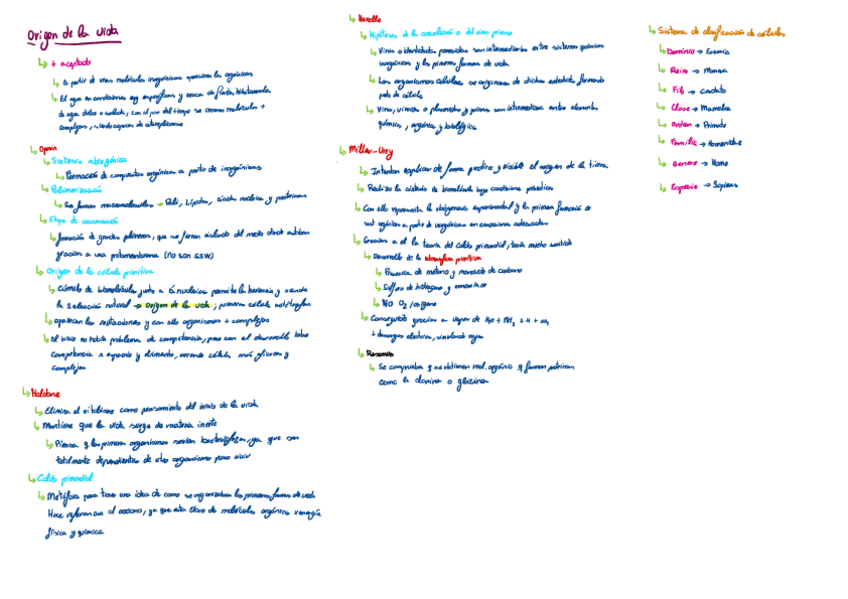 Origen de la vida
↳ + aceptado
↳ A partir de unas moléculas inorgánicas aparecían las orgánicas
↳ El agua en condiciones muy específicas y cerca de
de agua dulce o salada, con el paso del tiempo se crearon moléculas +
complejas, siendo capaces de
↳ Oparin
↳ Síntesis abiogénica
↳ Formación de compuestos orgánicos a partir de inorgánicos
↳ Polimerización
↳ Se forman macromoléculas → Poli, Lípidos, ácidos nucleicos y proteínas
↳ Etapa de
↳ formación de grandes polímeros, que se forman aislando del medio
gracias a una protomembrana (no son ssvv)
↳ Origen de la célula primitiva
↳ Cúmulo de biomoléculas junto a á. nucleicos permite la herencia y
la selección natural → origen de la vida; primeras células
↳ aparecen las mutaciones y con ello organismos + complejos
↳ Al inicio no había problema de competencia, pero con el desarrollo hubo
competencia x espacio y alimento, células más
complejas
↳ Haldane
↳ Elimina el vitalismo como pensamiento del inicio de la vida
↳ Mantiene que la vida surge de materia inerte
↳ Piensa q los primeros organismos serían ya que son
totalmente dependientes de otro organismo para vivir
↳ Caldo primordial
↳ Metáfora para tener una idea de como se organizaban las primeras formas de vida
Hace referencia al océano, ya que esta lleno de moléculas orgánicas x energía
física y química
↳
↳ Hipótesis de la o del virus primero
↳ Virus o identidades parecidas son intermediarios entre sistemas químicos
inorgánicos y las primeras formas de vida
↳ Los organismos celulares se originan de dichas entidades formando
parte de células
↳ Virus, viroides o plásmidos y priones son intermediarios entre elementos
químicos, orgánicos y biológicos
↳ Miller-Urey
↳ Intentan explicar de forma práctica y visible el origen de la tierra
↳ Realizó la síntesis de biomoléculas bajo condiciones
↳ Con ello representa la abiogénesis experimental y la primera formación de
mat orgánica a partir de inorgánicos en condiciones adecuadas
↳ Gracias a el la teoría del Caldo primordial, tenía mucho sentido
↳ Desarrollo de la atmósfera primitiva
↳ Presencia de metano y monóxido de carbono
↳ Sulfuro de hidrógeno y amoniaco
↳ NO O₂ /oxígeno
↳ Conseguido gracias a vapor de H₂O +
+ descargas eléctricas,
↳ Resumen
↳ Se comprueba q se obtienen mol. orgánica q forman
como la alanina o glicina
↳ Sistema de clasificación de células
↳ Dominio →
↳ Reino →
↳ Filo → cordato
↳ Clase →
↳ Orden → Primate
↳ Familia →
↳ Género → Homo
↳ Especie → Sapiens